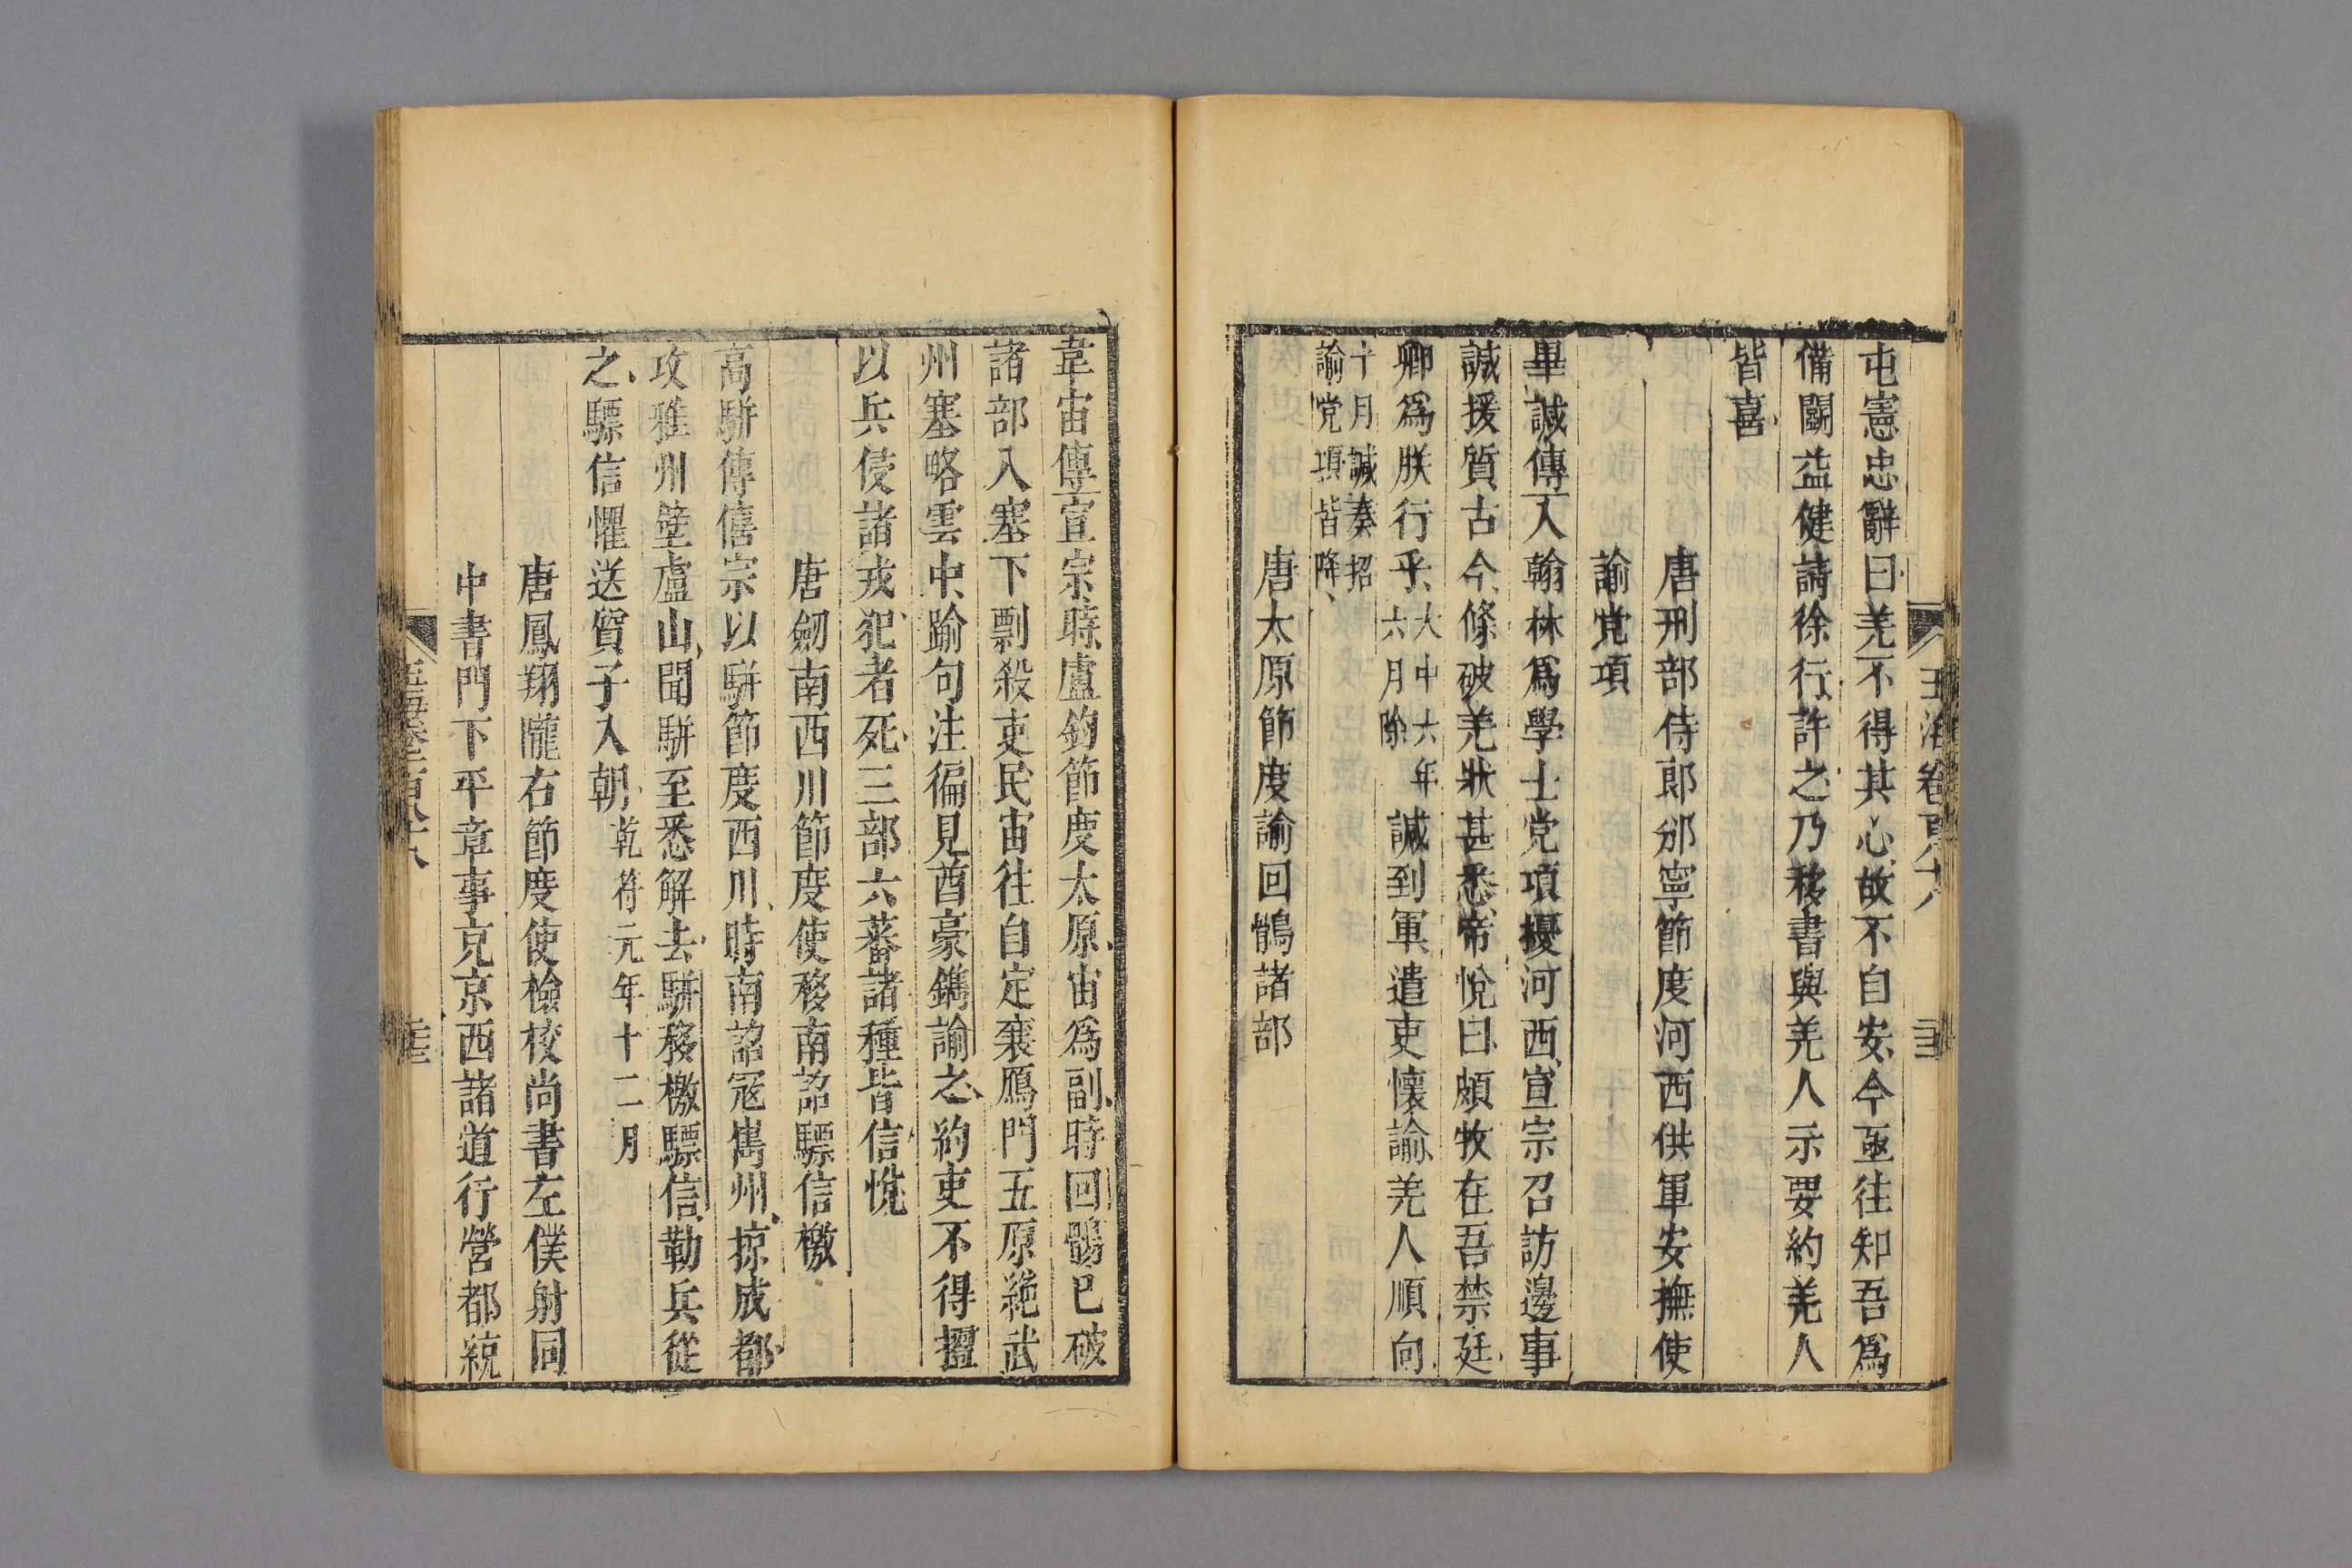 屯憲忠辭曰羌不得其心故不自安今亟往知吾爲
備鬬益健請徐行許之乃移書與羌人示要約羌人
皆喜
唐刑部侍郎邠寧節度河西供軍安撫使
諭党項
畢諴傳入翰林爲學士党項擾河西宣宗召訪邊事
諴援質古今條破羌狀甚悉帝悅曰頗牧在吾禁廷
卿爲朕行乎大中六年六月除諴到軍遣吏懷諭羌人順向
十月諴奏招諭党項皆降
唐太原節度諭回鶻諸部
韋宙傳宣宗時盧鈞節度太原宙爲副時回鶻已破
諸部入塞下剽殺吏民宙往自定襄鴈門五原絶武
州塞略雲中踰句注徧見酋豪鐫諭之約吏不得擅
以兵侵諸戎犯者死三部六蕃諸種皆信悅
唐劒南西川節度使移南詔驃信檄
高駢傳僖宗以駢節度西川時南詔寇巂州掠成都
攻雅州壁盧山聞駢至悉解去駢移檄驃信勒兵從
之驃信懼送質子入朝乾符元年十二月
唐鳳翔隴右節度使檢校尚書左僕射同
中書門下平章事克京西諸道行營都綂